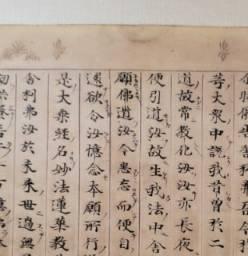 等大衆中說我昔曾於二
道故常教化汝汝亦長夜
便引道汝故生我法中舍
願佛道汝今悉忘而便自
還欲令汝憶念本願所行
是大乘經名妙法蓮華教
舍利弗汝於未來世過無